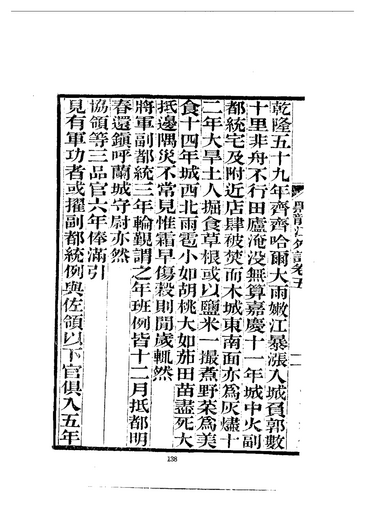 黑龍江外記卷五
乾隆五十九年齊齊哈爾大雨嫩江暴漲入城負郭數
十里非舟不行田廬淹沒無算嘉慶十一年城中火副
都統宅及附近店肆被焚而木城東南面亦為灰燼十
二年大旱土人掘食草根或以鹽米一撮煮野菜為美
食十四年城西北雨雹小如胡桃大如茄田苗盡死大
抵邊隅災不常見惟霜早傷穀則閒歲輒然
將軍副都統三年輪覲謂之年班例皆十二月抵都明
春還鎮呼蘭城守尉亦然
協領等三品官六年俸滿引
見有軍功者或擢副都統例與佐領以下官俱入五年
138